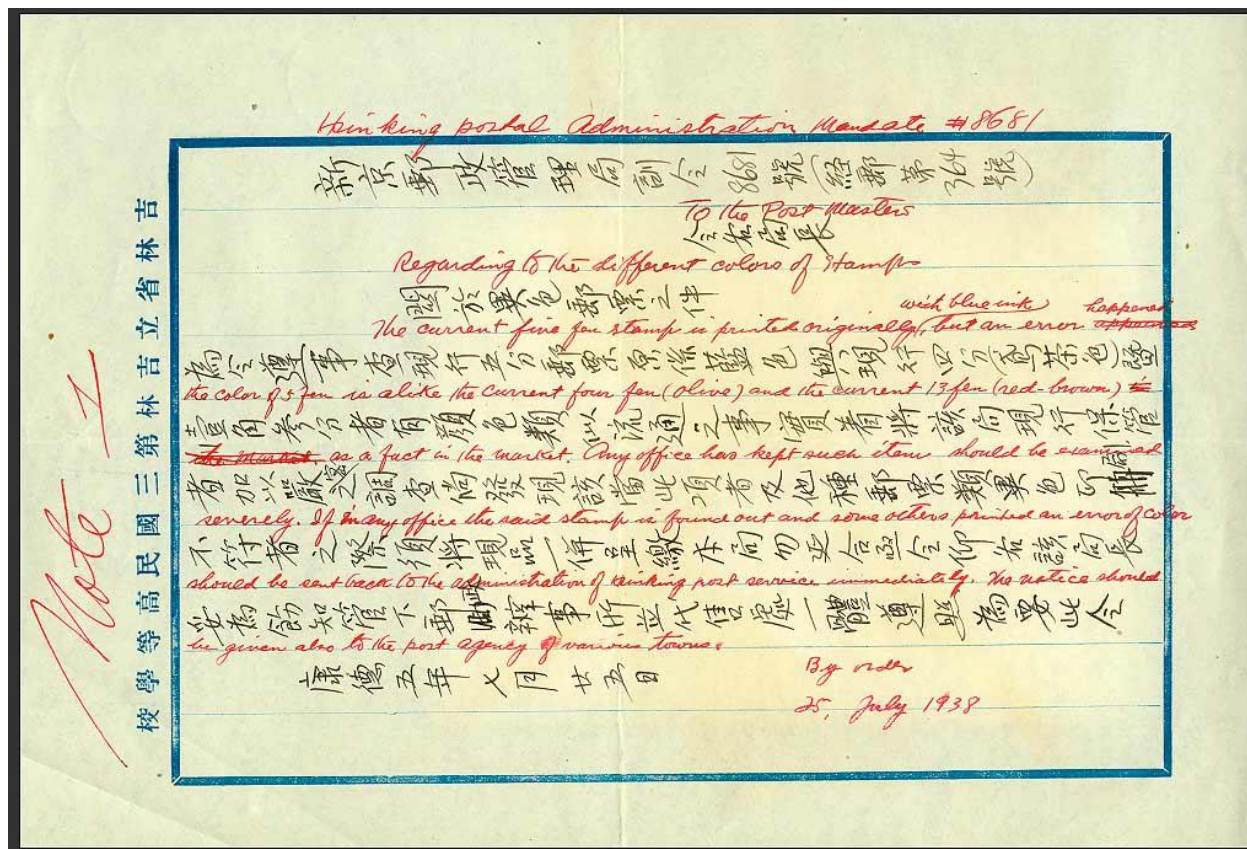 Note I
吉林省立吉林第三國民高等學校
Hsinking postal Administration Mandate #8681
新京郵政管理局訓令8681號(経郵第364號)
To the Post Masters
令各局長
Regarding to the different colors of Stamps
關於異色郵票之件
with blue ink happened
The current five fen stamp is printed originally, but an error appeared
為令遵事查現行五分郵票原係藍色與現行四分(鳶茶色)暨
the color of 5 fen is alike the current four fen (olive) and the current 13 fen (red-brown)
壹角參分者有顏色類似流通之事實着將該局現行保管
the market as a fact in the market. Any office has kept such item should be examined
者加以嚴密之調查倘發現該當此項者及他種郵票類異色印刷
severely. If in any office the said stamp is found out and some others printed an error of color
不符者之際須將現品一併呈繳本局勿延合亟令仰各該局長
should be sent back to the administration of Hsinking post service immediately. The notice should
妥為飭知管下郵政辦事所並代售處一體遵照為要此令
be given also to the post agency of various towns.
康德五年七月廿五日
By order
25, July 1938